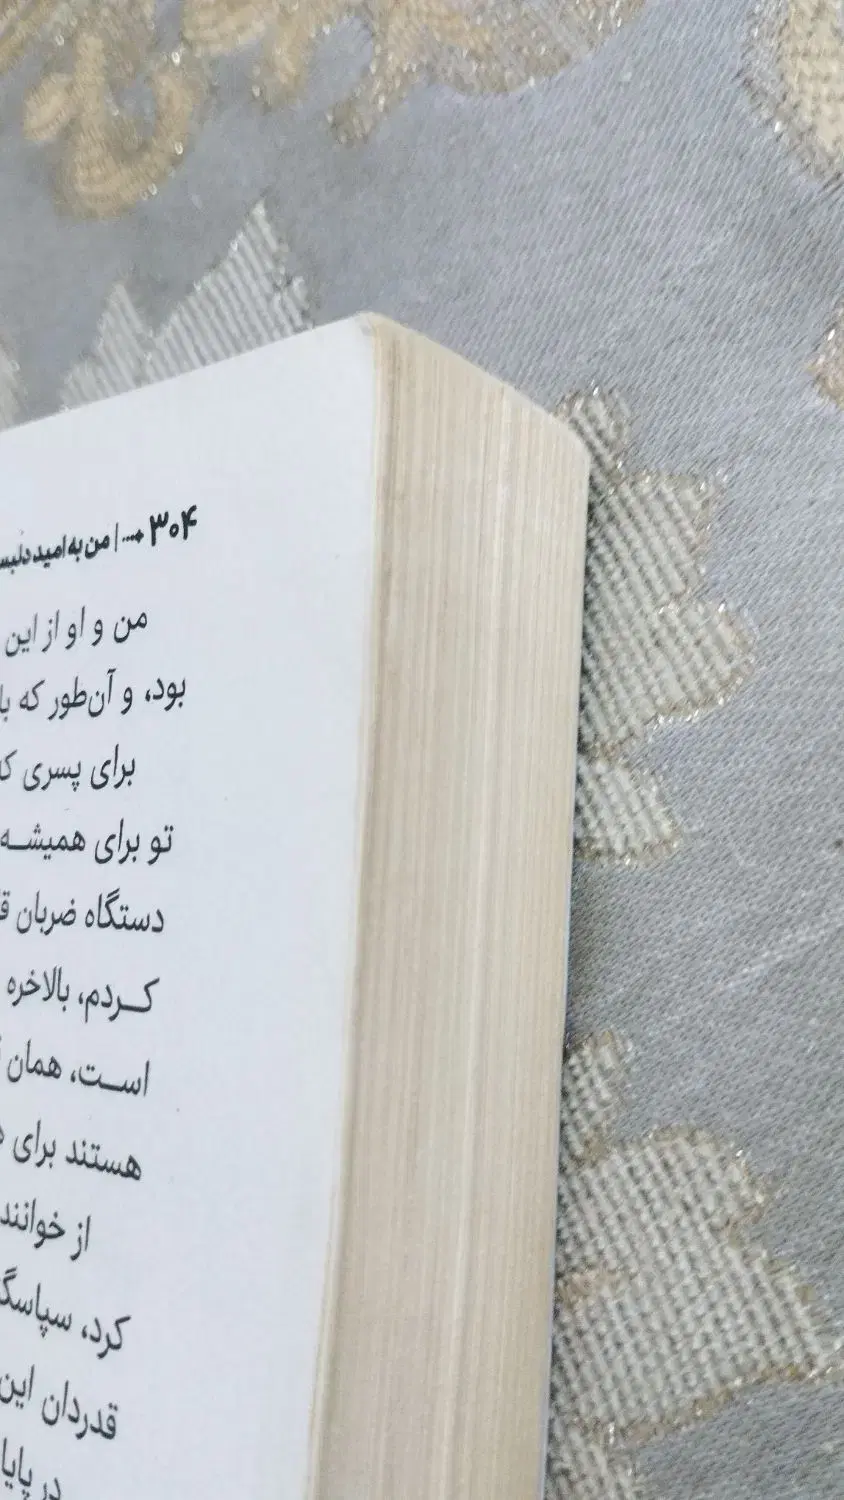 ۳۰۴ ... | من به امید دلبس
من و او از این
بود، و آن‌طور که با
برای پسری که
تو برای همیشه
دستگاه ضربان
کردم، بالاخره
است، همان
هستند برای
از خوانند
کرد، سپاسگ
قدردان این
در پایا